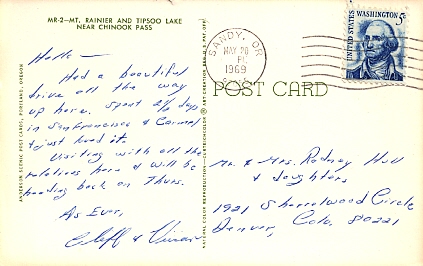 MR-2—MT. RAINIER AND TIPSOO LAKE
NEAR CHINOOK PASS
Hello —
Had a beautiful
drive all the way
up here. Spent 2½ days
in San Francisco & Carmel
& just loved it.
Visiting with all the
relatives here & will be
heading back on Thurs.
As Ever,
Cliff & Vivian
ANDERSON SCENIC POST CARDS, PORTLAND, OREGON
SANDY, OR
MAY 20
PM
1969
UNITED STATES
WASHINGTON 5c
POST CARD
Mr. & Mrs. Rodney Hull
& daughters
1921 Sherrelwood Circle
Denver, Colo. 80221